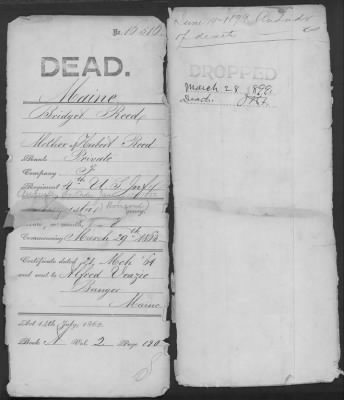 No. 19512
DEAD.
Maine
Bridget Reed
Mother of Hubert Reed
Rank: Private
Company F
Regiment 4th U.S. Inf
Augusta
Agency.
Commencing March 29th 1863
Certificate dated 24 Mch '64
and sent to Alfred Veazie
Bangor
Maine
Act 14th July, 1862.
Book A Vol. 2 Page 120
of death
DROPPED
March 28, 1899
Death.